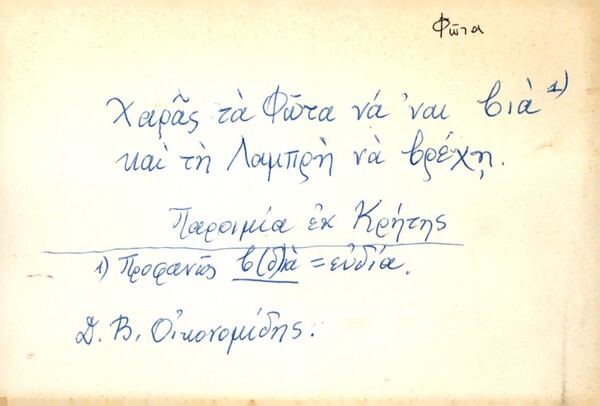 Φῶτα
Χαρᾶς τὰ Φῶτα νά 'ναι βιὰ 1)
καὶ τὴ Λαμπρὴ νὰ βρέχῃ.
Παροιμία ἐκ Κρήτης
1) Προφανῶς β(δ)ιὰ = εὐδία.
Δ. Β. Οἰκονομίδης.